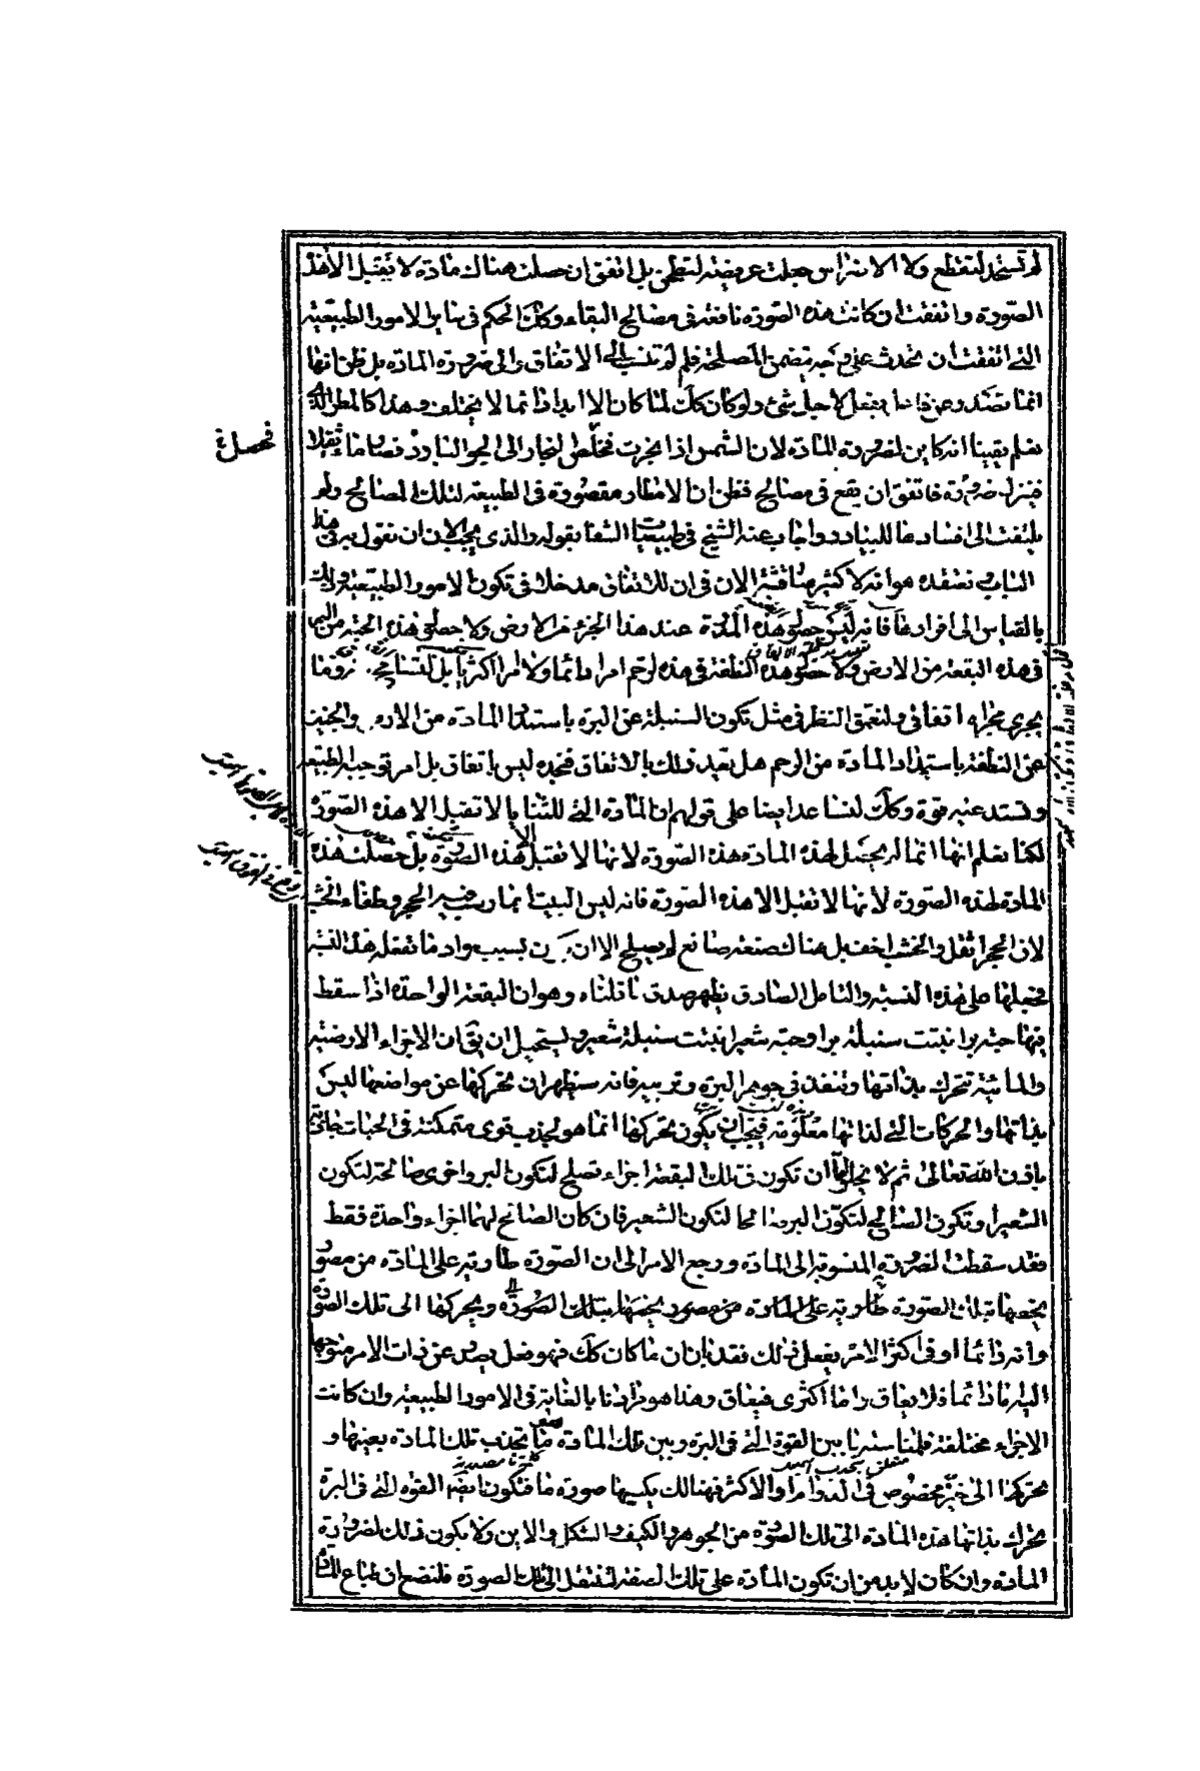 لم تستحد لتقطع ولا الاضراس جعلت عريضة لتطحن بل اتفق ان حصلت هناك مادة لا تقبل الا هذه
الصورة واتفقت ان كانت هذه الصورة نافعة فى مصالح البقاء وكك الحكم فى سائر الامور الطبيعية
التى اتفقت ان تحدث على وجه يتضمن المصلحة فلم لم تنسب الى الاتفاق والى ضرورة المادة بل ظن انها
انما تصدر عن فاعل يفعل لاجل شئ ولو كان كك لما كان الا ابدا دائما لا يختلف وهذا كالمطر الذى
نعلم يقينا انه كاين لضرورة المادة لان الشمس اذا بخرت فخلص البخار الى الجو البارد فصار ماء ثقيلا
فينزل ضرورة فاتفق ان يقع فى مصالح فظن ان الامطار مقصورة فى الطبيعة لتلك المصالح ولم
يلتفت الى افسادها للبيادر واجاب عنه الشيخ فى طبيعيات الشفا بقوله والذى يجب الان ان نقول به فى هذا
الباب ونعتقده هو انه لا كثير مناقشة الان فى ان للاتفاق مدخلا فى تكون الامور الطبيعية وذلك
بالقياس الى افرادها فانه ليس حصول هذه المادة عند هذا الجزء من الارض ولا حصول هذه الحبة من البر
فى هذه البقعة من الارض ولا حصول هذه النطفة فى هذه الرحم امرا دائما ولا امرا اكثريا بل لنتسامح انه وما
يجرى مجراه اتفاقى ولنعمق النظر فى مثل تكون السنبلة عن البرة باستمداد المادة من الارض والجنين
عن النطفة باستمداد المادة من الرحم هل يعد ذلك بالاتفاق فنجده ليس باتفاق بل امر توجبه الطبيعة
وتستدعيه قوة وكك لنساعد ايضا على قولهم ان المادة التى للثنايا لا تقبل الا هذه الصورة
لكنا نعلم انها انما لم يحصل لهذه المادة هذه الصورة لانها لا تقبل الا هذه الصورة بل حصلت هذه
المادة لهذه الصورة لانها لا تقبل الا هذه الصورة فانه ليس البيت انما رسب فيه الحجر وطفا الخشب
لان الحجر اثقل والخشب اخف بل هناك صنعة صانع لم يصلح الا ان يكون نسب مواد ما تفعله هذه النسبة
فجعلها على هذه النسبة والتامل الصادق يظهر صدق ما قلناه وهو ان البقعة الواحدة اذا سقط
فيها حبة بر انبتت سنبلة بر او حبة شعير انبتت سنبلة شعير ويستحيل ان يق ان الاجزاء الارضية
والمائية تتحرك بذاتها وتنفذ فى جوهر البرة وتربيه فانه سيظهر ان تحركها عن مواضعها ليس
بذاتها والحركات التى لذاتها معلومة فيجب ان يكون تحركها انما هو لجذب قوى متمكنة فى الحبات جاذبة
باذن الله تعالى ثم لا يخلو اما ان تكون فى تلك البقعة اجزاء تصلح لتكون البر واخرى صالحة لتكون
الشعير او تكون الصالح لتكون البر صالحا لتكون الشعير فان كان الصالح لهما اجزاء واحدة فقط
فقد سقطت الضرورة المنسوبة الى المادة ورجع الامر الى ان الصورة طارية على المادة من مصور
يخصها بتلك الصورة طارية على المادة من مصور يخصها بتلك الصورة ويحركها الى تلك الصورة
وانه دائما او فى اكثر الامر يفعل ذلك فقد بان ان ما كان كك فهو فعل يصدر عن ذات الامر متوجها
اليه فاما دائما فلا يعاق واما اكثرى فيعاق وهذا هو مرادنا بالغاية فى الامور الطبيعية وان كانت
الاجزاء مختلفة فلمناسبة ما بين القوة التى فى البرة وبين تلك المادة ما تجذب تلك المادة بعينها و
تحركها الى حيز مخصوص فى الدوام او الاكثر فهنالك يكسيها صورة ما فتكون ايضا القوة التى فى البرة
تحرك بذاتها هذه المادة الى تلك الصورة من الجوهر والكيف والشكل والاين ولا يكون ذلك لضرورة
المادة وان كان لابد من ان تكون المادة على تلك الصفة لتنتقل الى تلك الصورة فلنضع ان طباع المادة